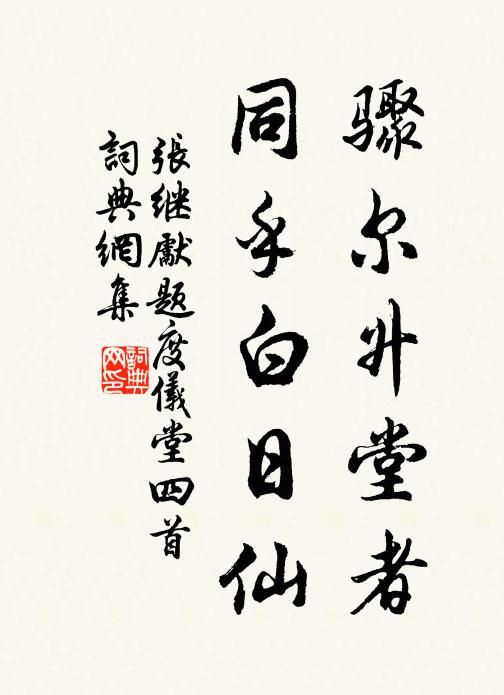 骤尔升堂者
同乎白日仙
張继獻题度儀堂四首
詞典網集
詞典网印